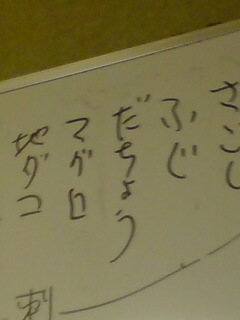 さごし
ふじ
だちょう
マグロ
地ダコ
刺